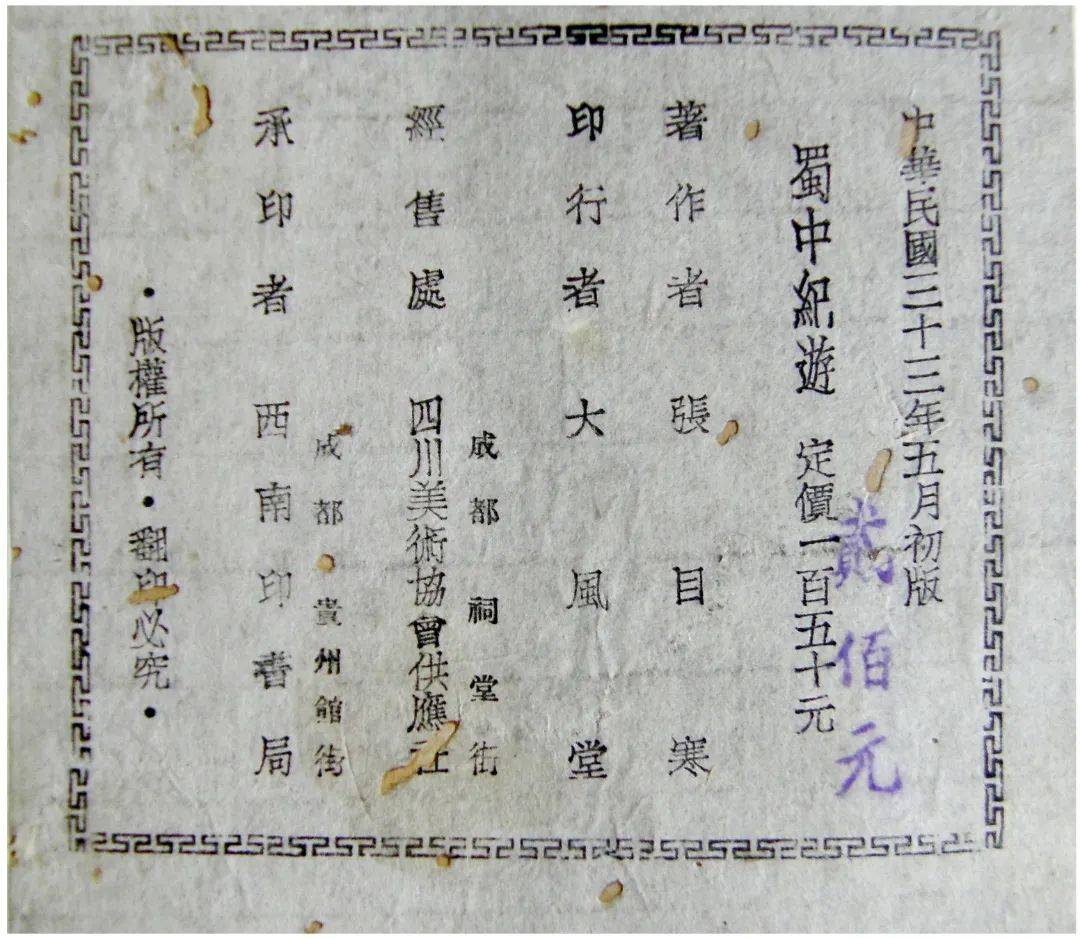 中華民國三十三年五月初版
貳佰元
蜀中紀遊 定價一百五十元
著作者 張目寒
印行者 大風堂
成都祠堂街
經售處 四川美術協會供應社
成都貴州館街
承印者 西南印書局
・版權所有・翻印必究・